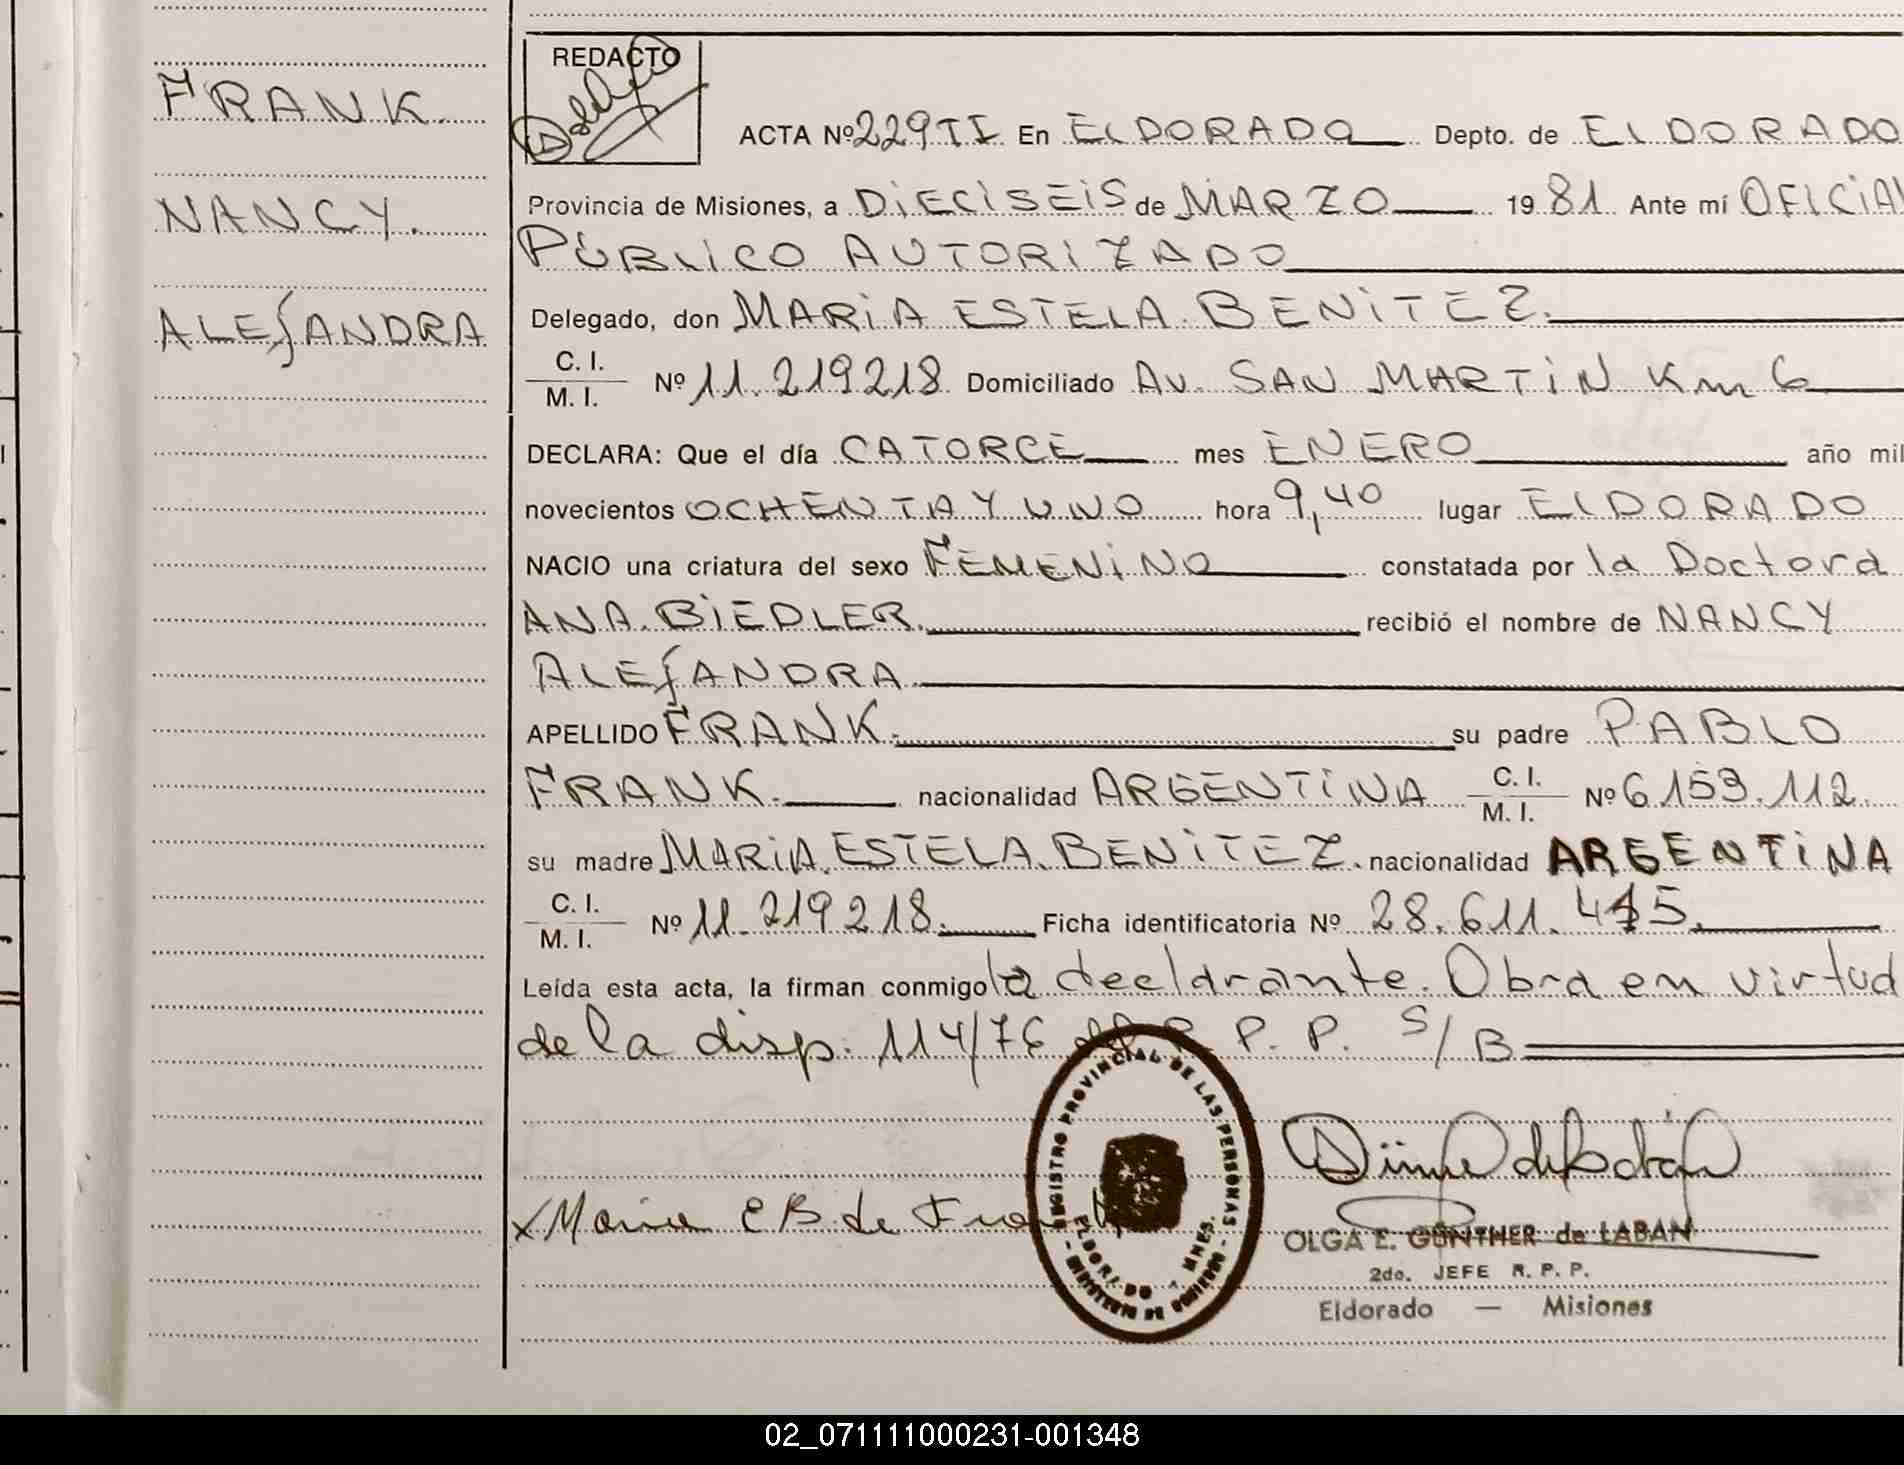 FRANK.
NANCY.
ALEJANDRA
REDACTO
ACTA Nº 229 TI En ElDORADO Depto. de ElDORADO
Provincia de Misiones, a DIECISEIS de MARZO 1981 Ante mí OFICIAl
PÚBLICO AUTORIZADO
Delegado, don MARIA ESTELA BENITEZ.
C. I.
M. I. Nº 11.219218 Domiciliado AV. SAN MARTIN Km 6
DECLARA: Que el día CATORCE mes ENERO año mil
novecientos OCHENTA Y UNO hora 9,40 lugar ElDORADO
NACIO una criatura del sexo FEMENINO constatada por la Doctora
ANA BIEDLER. recibió el nombre de NANCY
ALEJANDRA
APELLIDO FRANK. su padre PABLO
FRANK. nacionalidad ARGENTINA C. I. M. I. Nº 6.153.112
su madre MARIA ESTELA BENITEZ. nacionalidad ARGENTINA
C. I.
M. I. Nº 11.219218. Ficha identificatoria Nº 28.611.445.
Leída esta acta, la firman conmigo la declarante. Obra en virtud
de la disp. 114/76 R. P. P. S/B
REGISTRO PROVINCIAL DE LAS PERSONAS
ELDORADO - MNES.
- MINISTERIO DE GOBIERNO -
x Maria E B de Frank
OLGA E. GÜNTHER de LABAN
2do. JEFE R. P. P.
Eldorado — Misiones
02_071111000231-001348